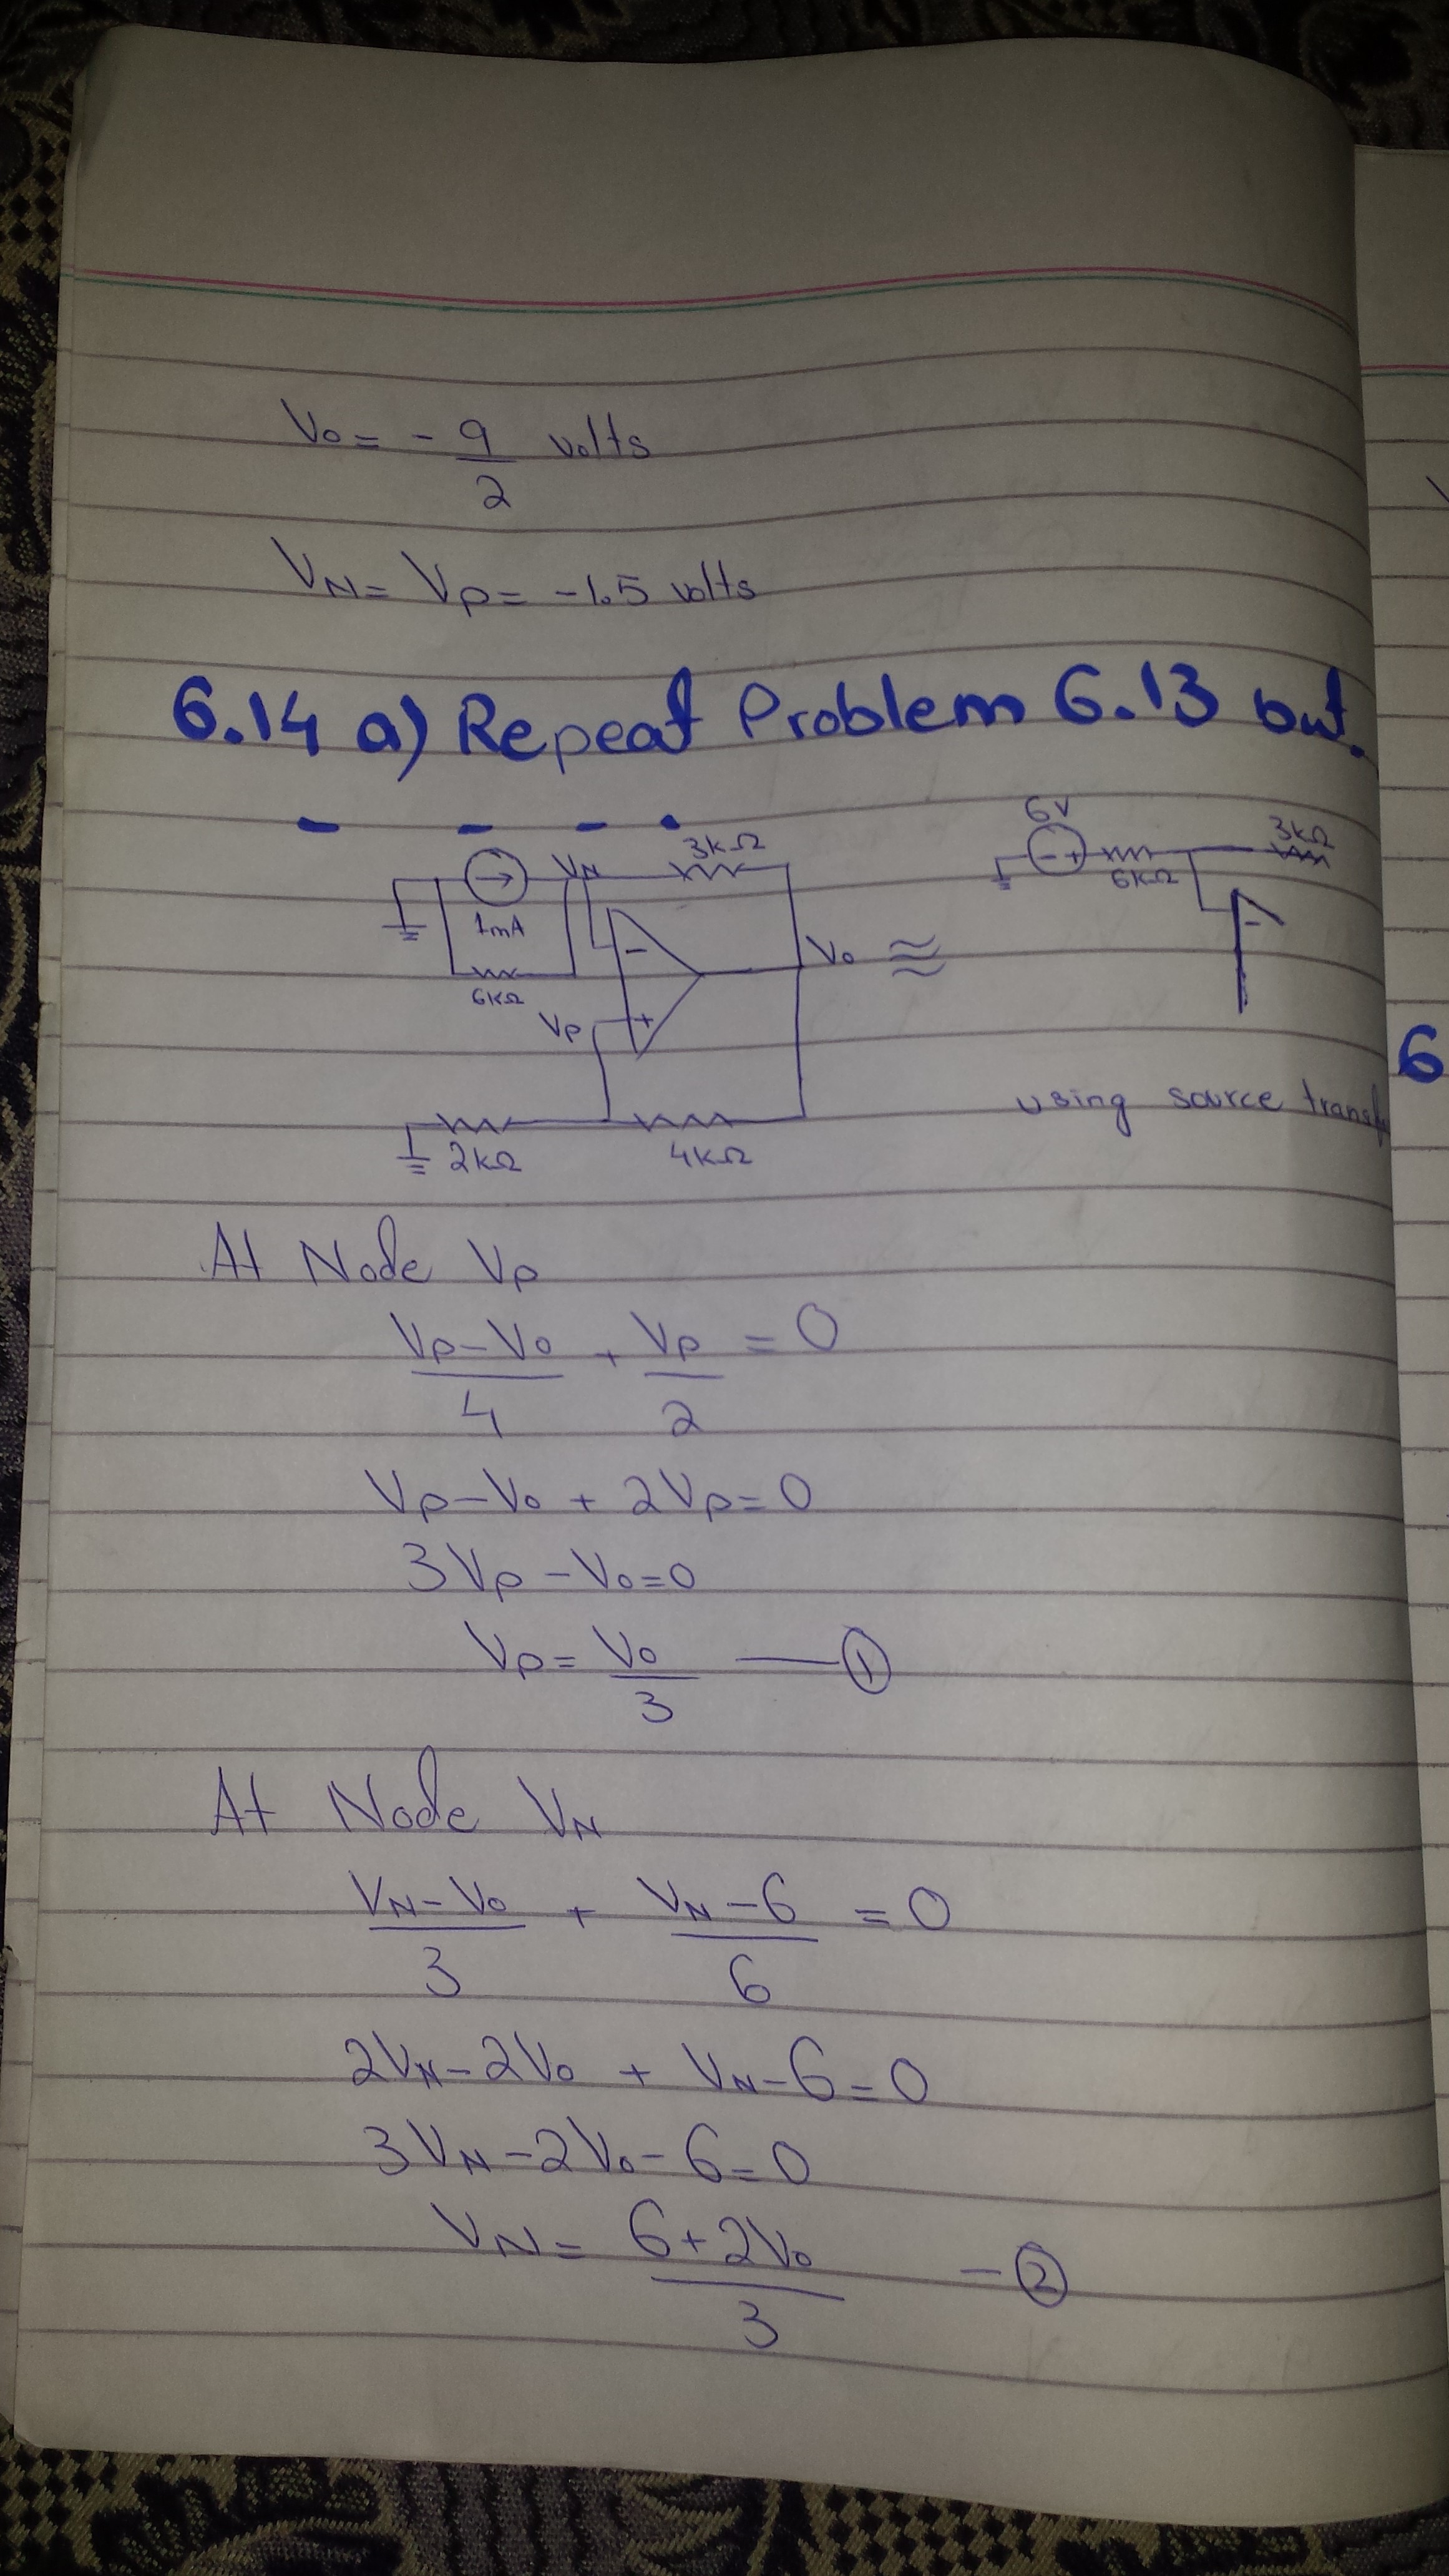 Vo = - 9/2 volts
VN = VP = -1.5 volts
6.14 a) Repeat Problem 6.13 but.
6V
3kΩ
3kΩ
VN
- +
6kΩ
1mA
-
-
Vo ≈
6kΩ
VP
+
using source
2kΩ
4kΩ
6
At Node VP
VP - Vo / 4 + VP / 2 = 0
VP - Vo + 2VP = 0
3VP - Vo = 0
VP = Vo / 3 — ①
At Node VN
VN - Vo / 3 + VN - 6 / 6 = 0
2VN - 2Vo + VN - 6 = 0
3VN - 2Vo - 6 = 0
VN = 6 + 2Vo / 3 — ②